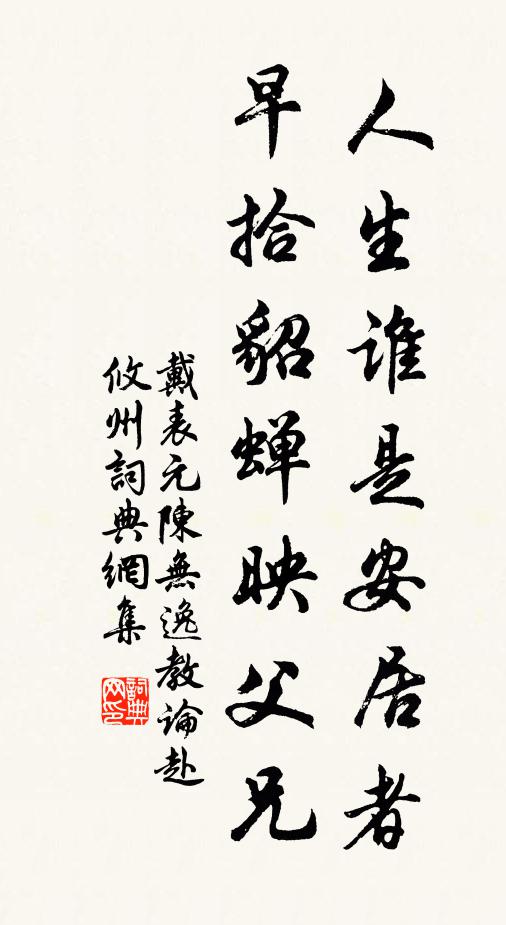 人生谁是安居者
早拾貂蝉映父兄
戴表元陳無逸教論赴
攸州詞典網集
詞典网印